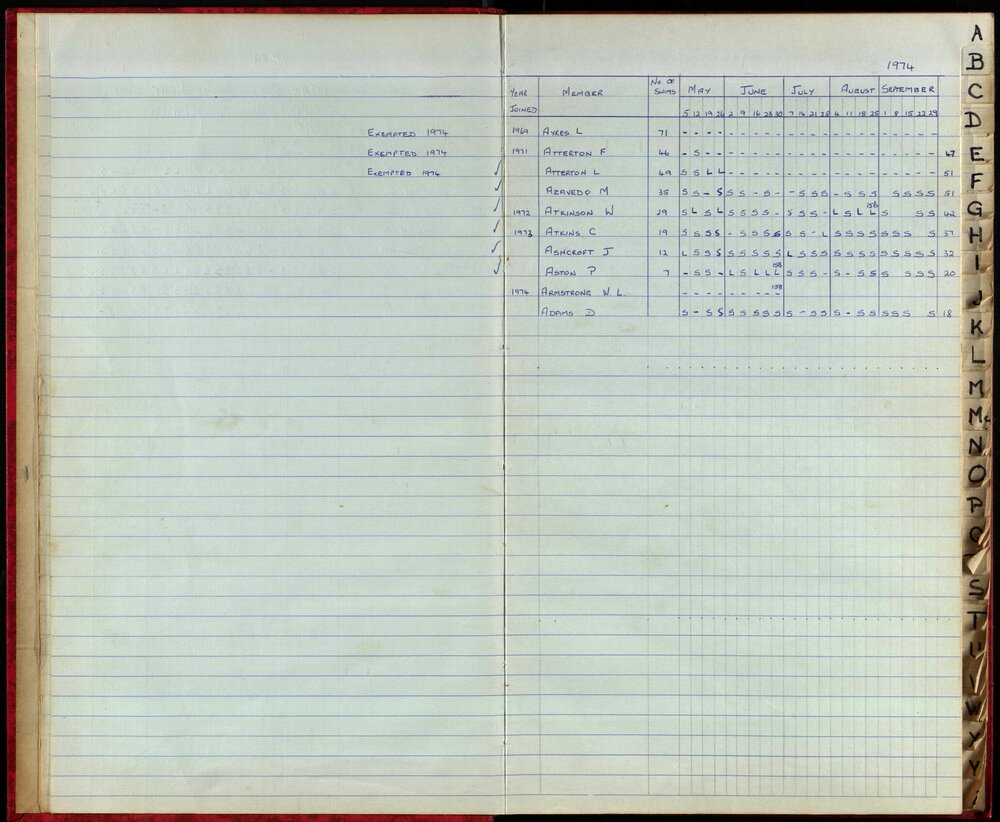 1974
YEAR JOINED MEMBER No OF SWIMS MAY JUNE JULY AUGUST SEPTEMBER
5 12 19 26 2 9 16 23 30 7 14 21 28 4 11 18 25 1 8 15 22 29
EXEMPTED 1974 1969 AYRES L 71 - - - - - - - - - - - - - - - - - - - - - -
EXEMPTED 1974 1971 ATTERTON F 46 - S - - - - - - - - - - - - - - - - - - - - 47
EXEMPTED 1974 ✓ ATTERTON L 49 S S L L - - - - - - - - - - - - - - - - - - 51
✓ AZAVEDO M 35 S S - S S S - S - - S S S - S S S S S S S 51
✓ 1972 ATKINSON W 29 S L S L S S S S - S S S - L S L L 15B S S S 42
✓ 1973 ATKINS C 19 S S S S - S S S S S S - L S S S S S S S S 37
✓ ASHCROFT J 12 L S S S S S S S S L S S S S S S S S S S S S 32
✓ ASTON P 7 - S S - L S L L L 15B S S S - S - S S S S S S 20
1974 ARMSTRONG W. L. - - - - - - - - - 15B
ADAMS D S - S S S S S S S S - S S S - S S S S S S 18
A
B
C
D
E
F
G
H
I
J
K
L
M
Mc
N
O
P
S
T
U
W
Y